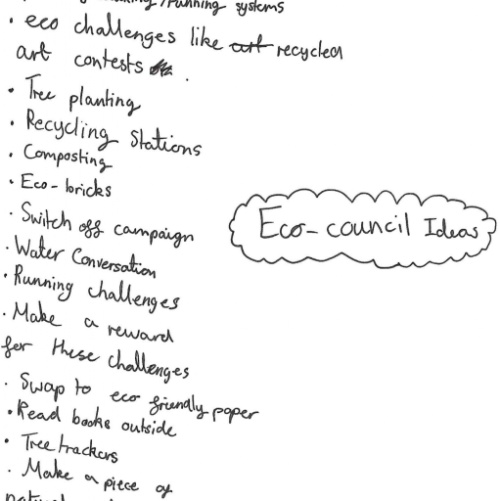 /running systems
• eco challenges like art recycled
art contests .
• Tree planting
• Recycling Stations
• Composting
• Eco-bricks
• Switch off campaign
• Water Conversation
• Running challenges
• Make a reward
for these challenges
• Swap to eco friendly paper
• Read books outside
• Tree trackers
• Make a piece of
Eco-council Ideas